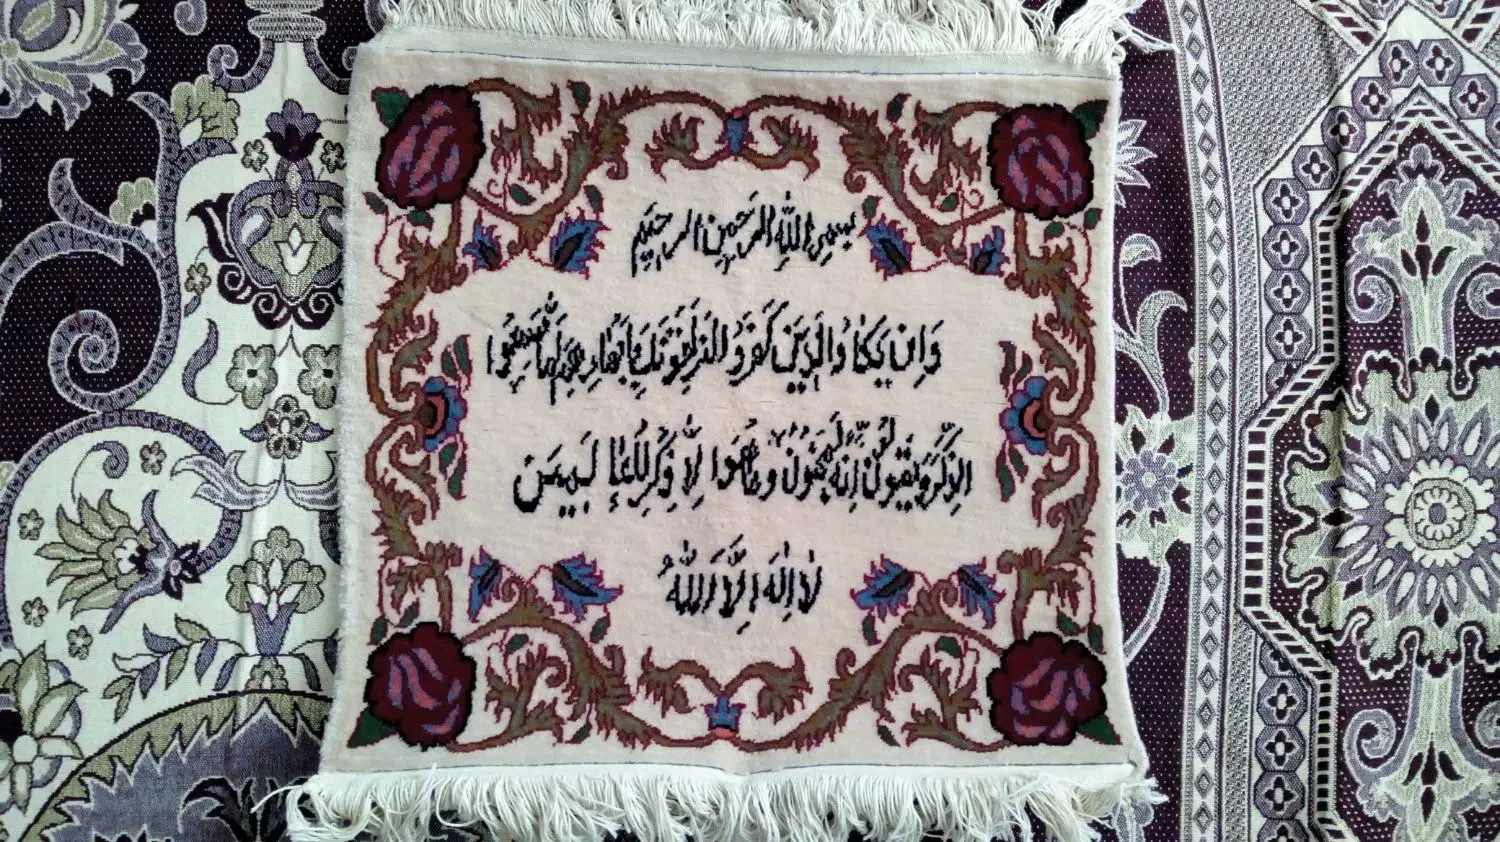 بسم الله الرحمن الرحیم
وَاِن یَکادُ الَّذینَ کَفَرو لَیُزلِقونَکَ بِاَبْصارِهِم لَمّا سَمِعُوا
الذِّکرَ وَیَقولُونَ اِنَّهُ لَمَجنُونٌ وَماهُوَا اِلّا ذِکرٌ لِلعا لَمین
لا اِلهَ اِلّا اللهُ